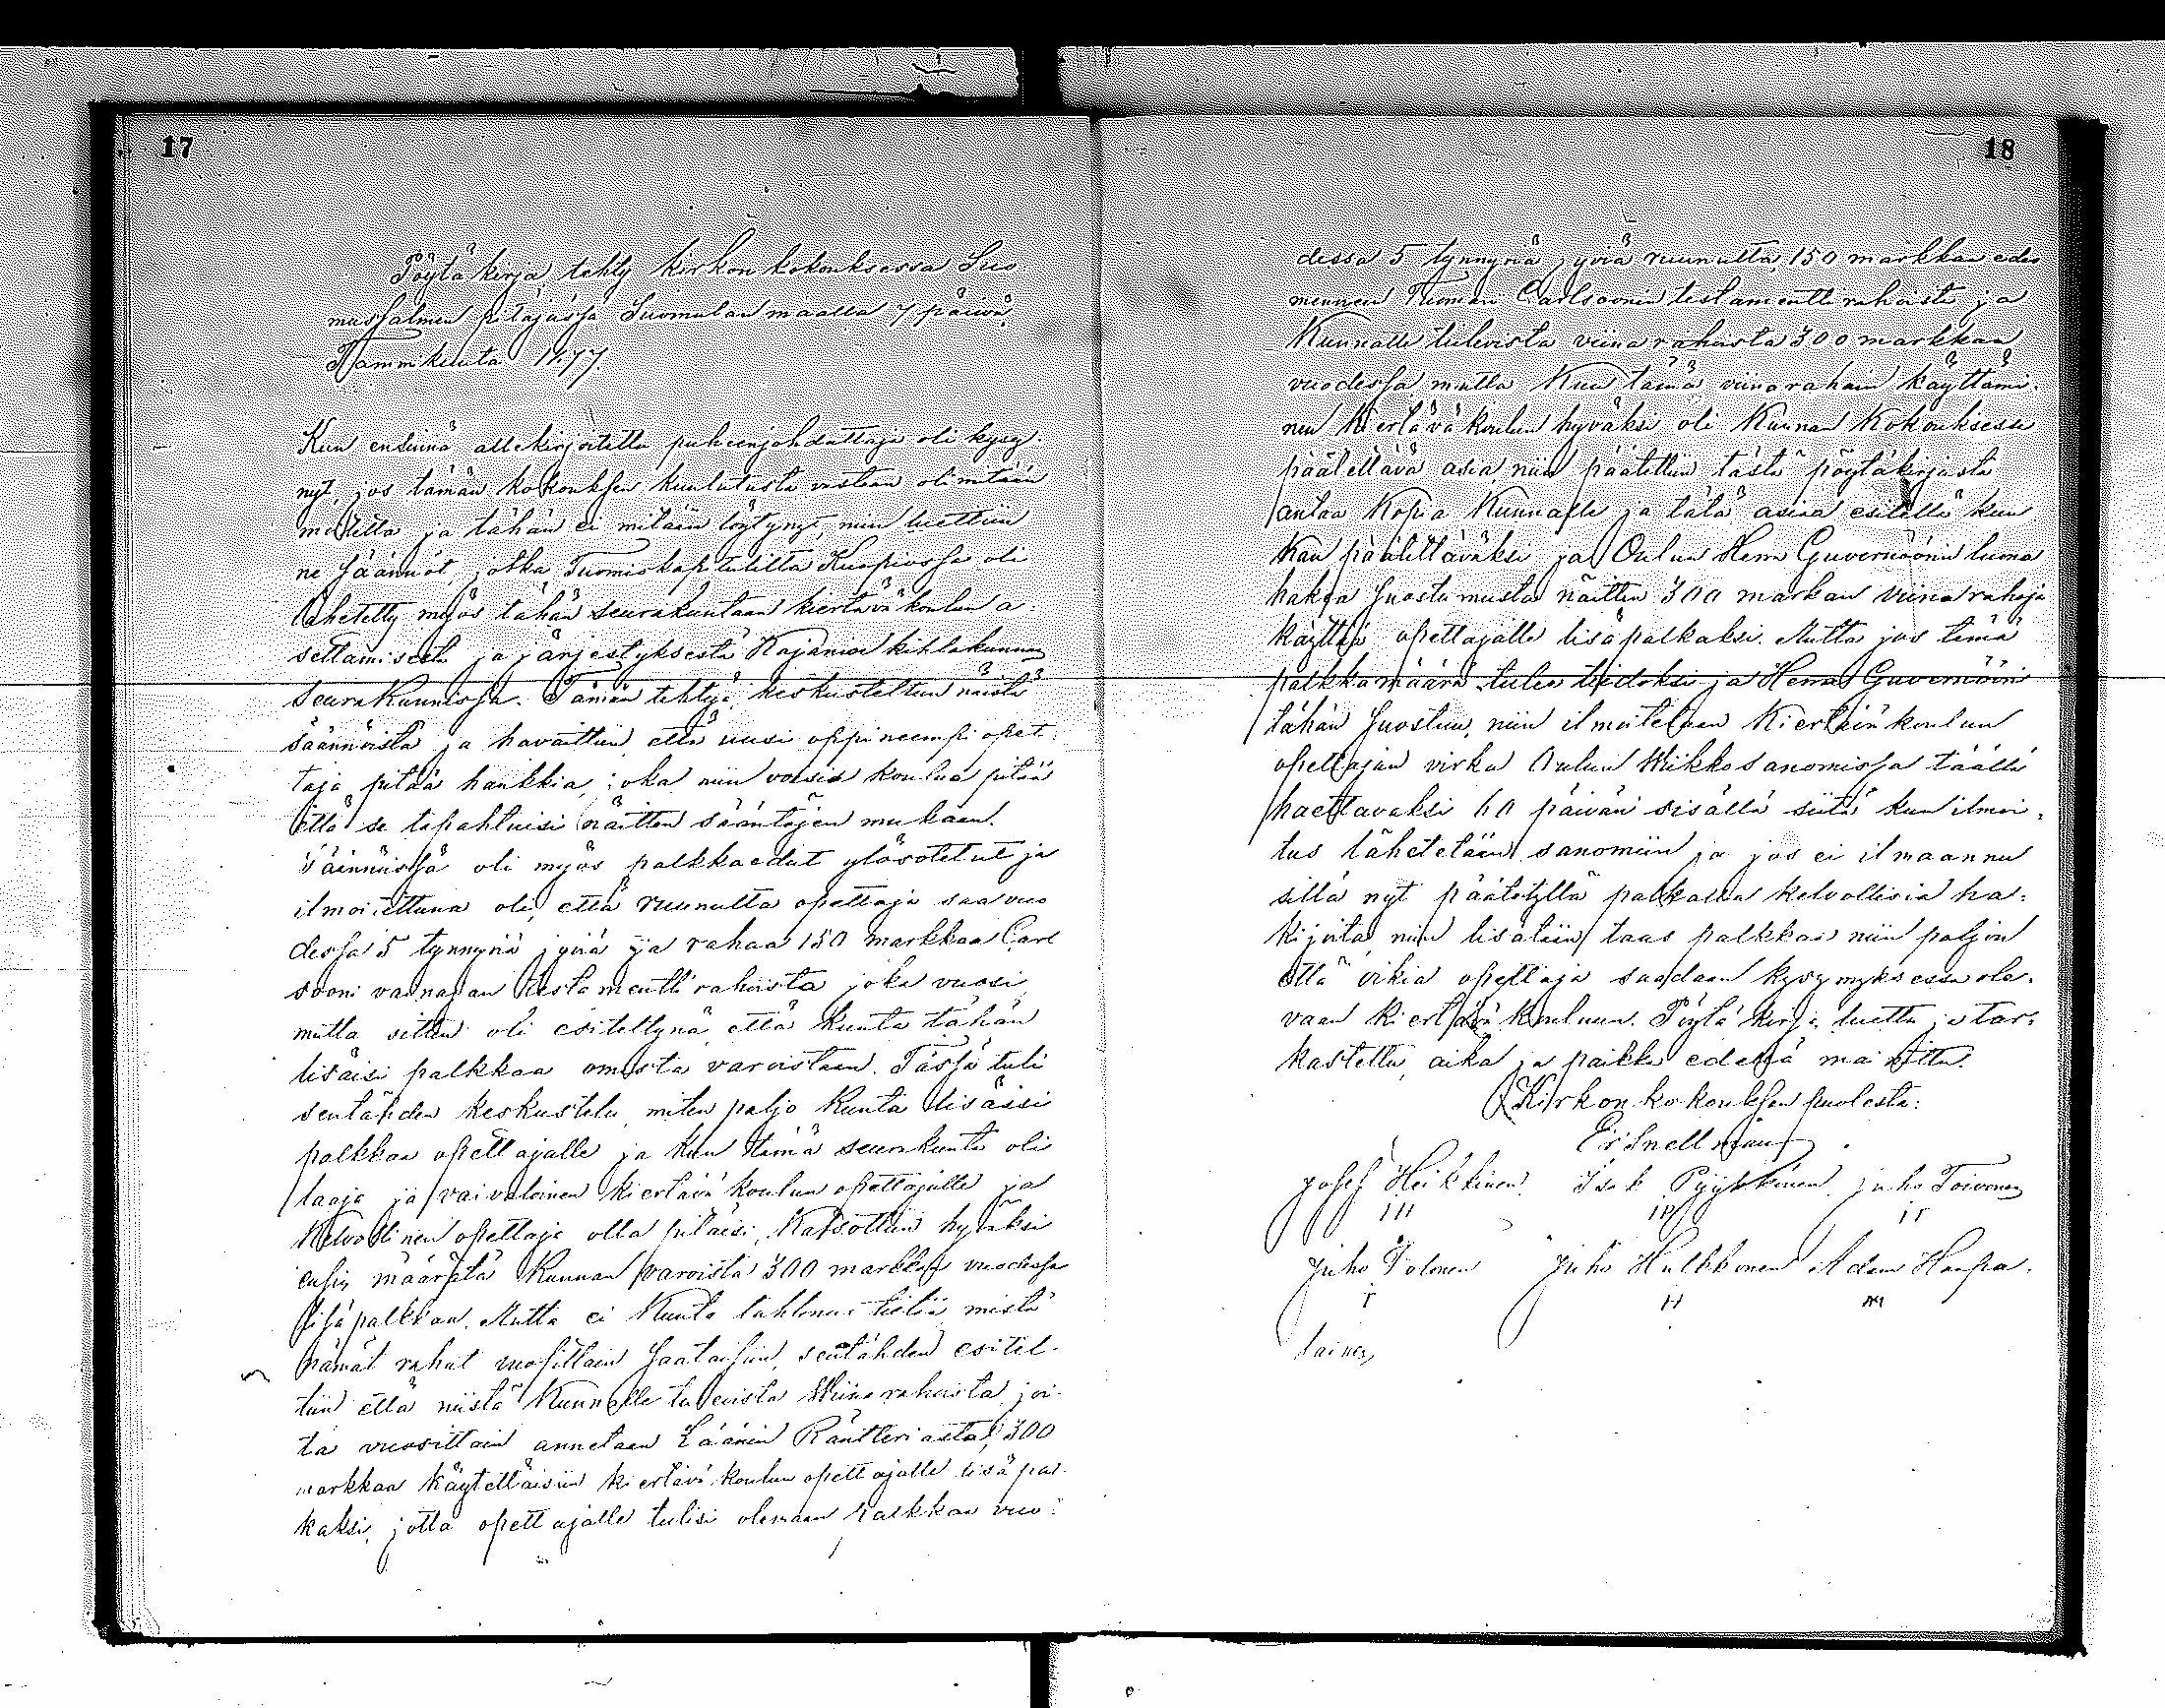 17
Pöytäkirja, tehty kirkon kokouksessa Suo
mussalmen pitäjässä Suomulan maalla 7 päivä
Tammikuuta 1877.
Kun ensinnä allekirjoitettu puheenjohdattaja oli kysy-
nyt, jos tämän kokouksen kuulutusta vastaan oli mitään
ja tähän ei mitään löytynyt, niin luettiin
ne säännöt, jotka Tuomiokapitulilta Kuopiossa oli
lähetetty myös tähän seurakuntaan kiertäväkoulun a-
settamisesta ja järjestyksestä Kajaanin kihlakunnan
seurakunnissa. Tämän tehtyä, keskusteltiin näistä
säännöistä ja havaittiin että uusi oppineempi opet-
taja pitää hankkia, joka niin voisi koulua pitää
että se tapahtuisi näitten sääntöjen mukaan.
Säännöissä oli myös palkkaedut ylösotetut ja
ilmoitettuna oli, että ruunulta opettaja saa vuo
dessa 5 tynnyriä jyviä ja rahaa 150 markkaa Carl
sooni vainajan testamentti rahoista joka vuosi,
mutta sitten oli esitettynä että kunta tähän
lisäisi palkkaa omista varoistaan. Tässä tuli
sentähden keskustelu, miten paljo kunta lisäisi
palkkaa opettajalle ja kun tämä seurakunta oli
laaja ja vaivaloinen kiertävä koulun opettajalle ja
kelvollinen opettaja olla pitäisi, katsottiin hyväksi
ensin määrätä Kunnan varoista 300 markkaa vuodessa
lisäpalkkaa. Mutta ei Kunta tahtonut tietää mistä
nämät rahat vuosittain saataisiin, sentähden esitel-
tiin että niistä Kunnalle tulevista Wiinarahoista, joi-
ta vuosittain annetaan Läänin Räntteriasta, 300
markkaa käytettäisiin kiertävä koulun opettajalle lisä pal-
kaksi, jotta opettajalle tulisi olemaan palkkaa vuo-
18
dessa 5 tynnyriä jyviä ruunulta, 150 markkaa edes
menneen Tuomari Carlsoonin testamentti rahoista ja
Kunnalle tulevista viinarahoista 300 markkaa
vuodessa, mutta Kun tämä viinarahain käyttämi-
nen Kiertäväkoulun hyväksi oli Kunnan Kokouksessa
päätettävä asia, niin päätettiin tästä pöytäkirjasta
antaa Kopia Kunnalle ja tätä asiaa esitellä kun
nan päätettäväksi ja Oulun Herra Guvernöörin luona
hakea suostumusta näitten 300 markan viinarahoja
käyttää opettajalle lisäpalkaksi. Mutta jos tämä
palkkamäärä tulee tiedoksi ja Herra Guvernööri
tähän suostuu, niin ilmoitetaan Kiertävä koulun
opettajan virka Oulun Wiikkosanomissa täällä
haettavaksi 60 päivän sisällä siitä kun ilmoi-
tus lähetetään sanomiin ja jos ei ilmaannu
sillä nyt päätetyllä palkalla kelvollisia ha-
kijoita niin lisätään taas palkkaa niin paljon
että oikia opettaja saadaan kysymyksessä ole-
vaan kiertävä kouluun. Pöytäkirja luettu ja tar-
kastettu, aika ja paikka edellä mainittu.
Kirkon kokouksen puolesta:
Er Snellman
Josef Heikkinen. Isak Pyykkönen. Juho Toivonen
Juho Polonen Juho Hulkkonen Adam Haapa-
lainen